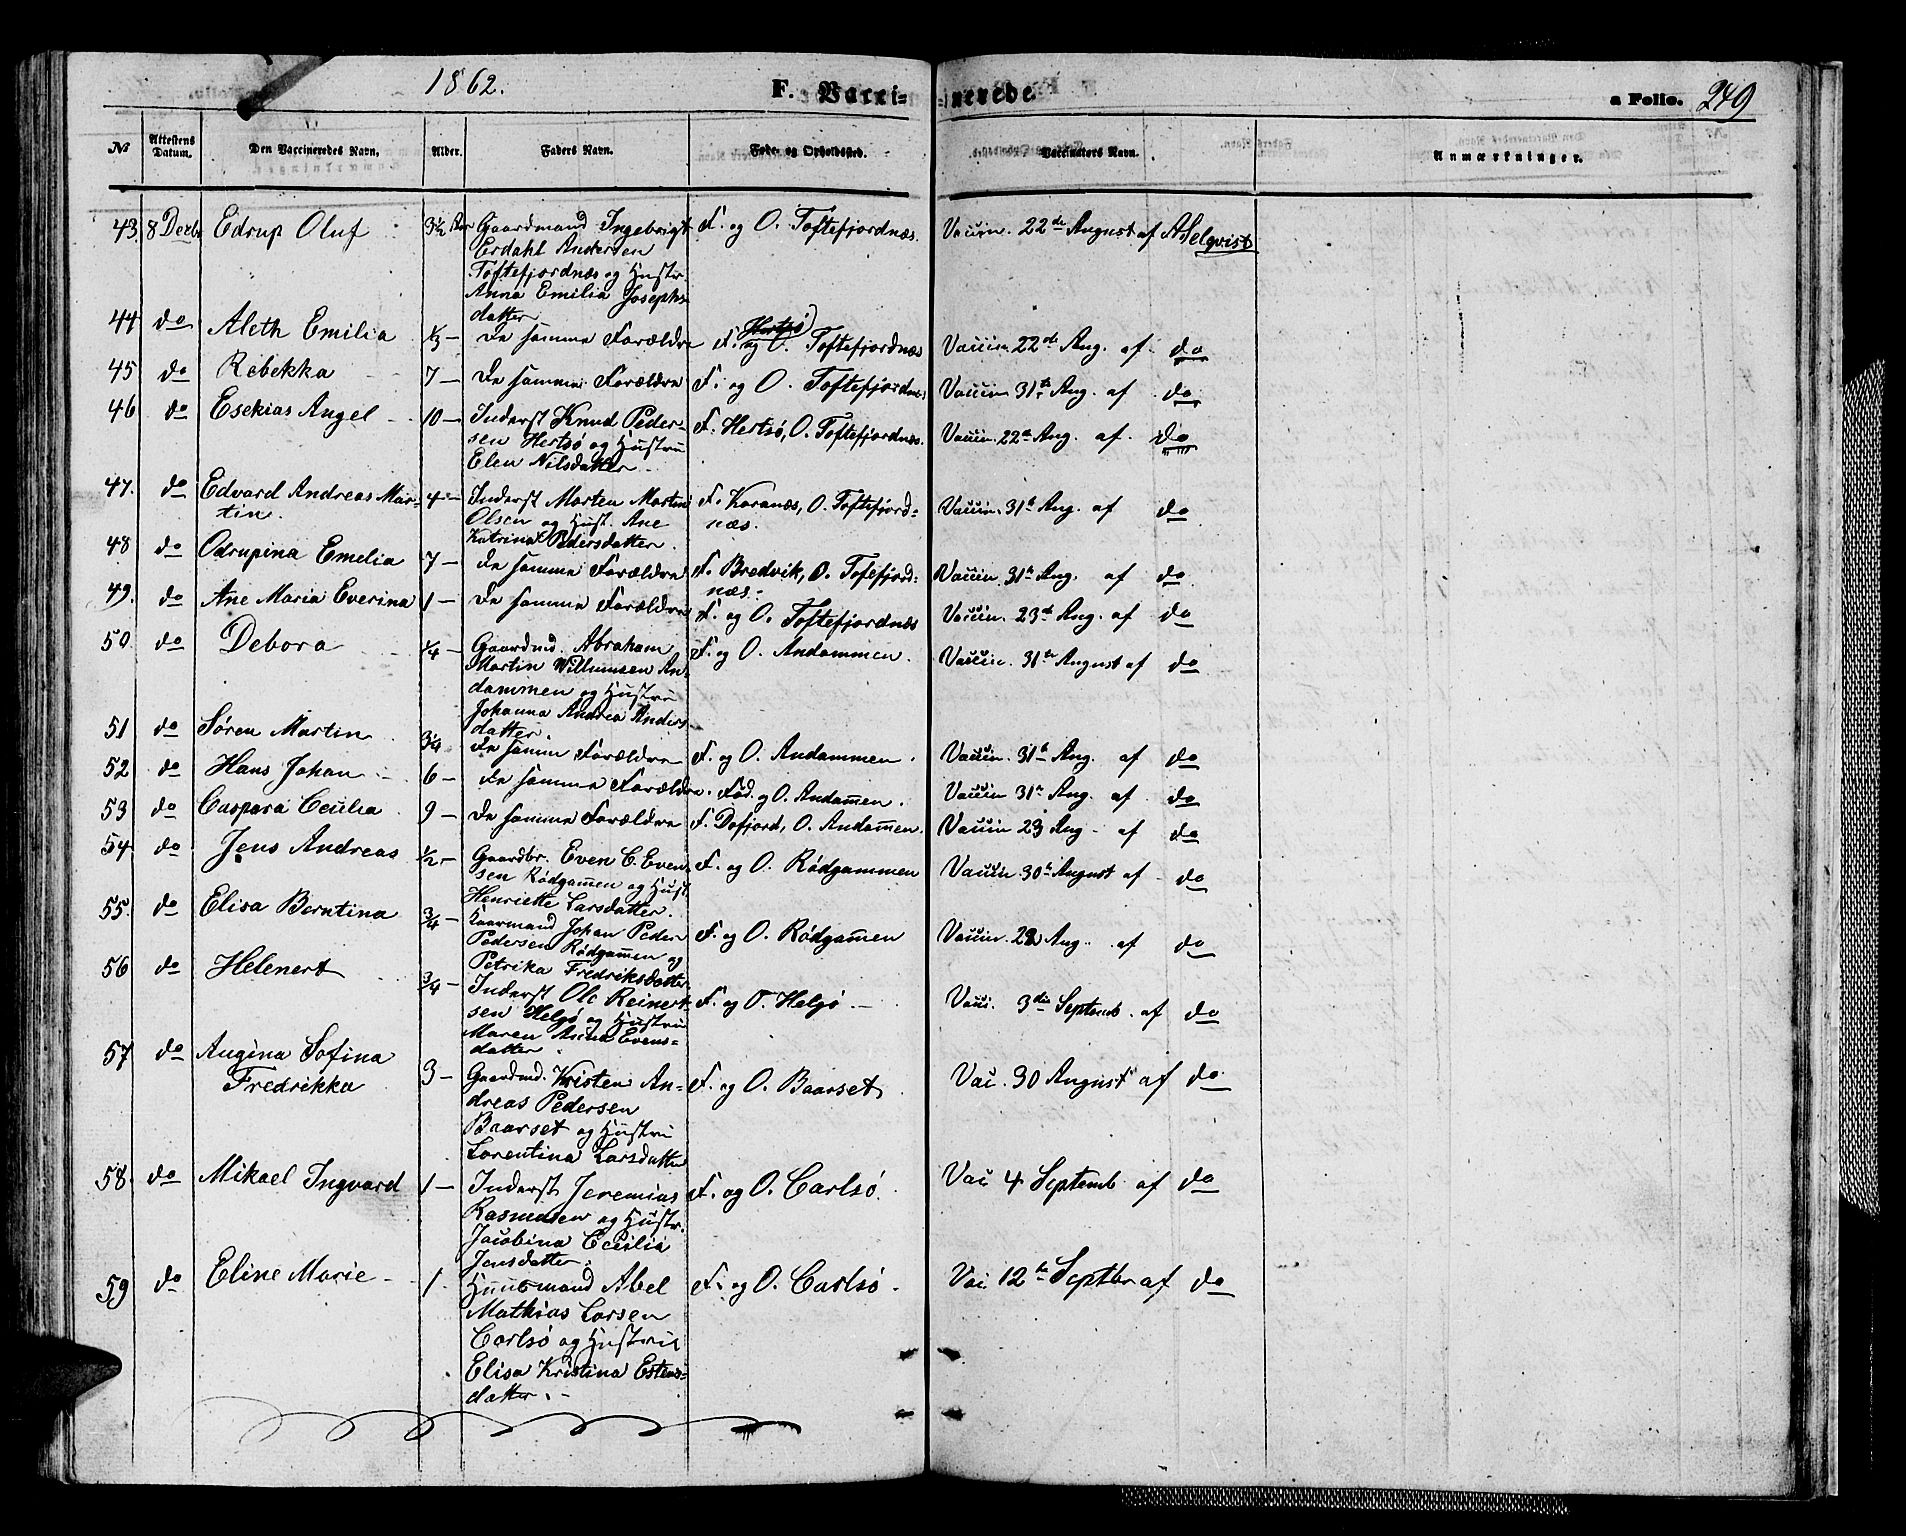 1862.
F. Vacci-
nerede.
a Folio. 249
№
Attestens Datum.
Den Vaccineredes Navn.
Alder.
Faders Navn.
Føde- og Opholdssted.
Vaccinators Navn.
Anmærkninger.
43. 8 Decbr Edrup Oluf 3½ Aar Gaardmand Ingebrigt F. og O. Toftefjordnæs. Vaccin. 22de August af A Selqvist
Erdahl Andersen
Toftefjordnæs og Hustr
Anna Emilia Josephs
datter
44 do Aleth Emilia ⅓ — De samme Forældre F. og O. Toftefjordnæs Vaccin. 22de Aug. af do
Hertsø
45 do Rebekka 7 — De samme Forældre F. og O. Toftefjordnæs Vaccin 31te Aug. af do
46 do Esekias Angel 10 — Inderst Knud Peder- F. Hertsø, O. Toftefjordnæs. Vaccin. 22de Aug. af do
sen Hertsø og Hustru
Elen Nilsdatter
47. do Edvard Andreas Mar- 4 — Inderst Morten Martin F. Koranæs, O. Toftefjord-
tin. Olsen og Hust. Ane næs. Vaccin. 31te Aug. af do
Katrina Pedersdatter.
48 do Odrupina Emelia 7 — De samme Forældre F. Bredvik, O. Tofefjord-
næs. Vaccin. 31te Aug. af do
49. do Ane Maria Everina 1 — De samme Forældre F. og O. Toftefjordnæs Vaccin. 23de Aug. af do
50 do Debora ¼ — Gaardmd. Abraham F. og O. Andammen. Vaccin. 31te August af do
Martin Willumsen An-
dammen og Hustru
Johanna Andrea Anders-
datter.
51 do Søren Martin 3¼ De samme Forældre F. og O. Andammen. Vaccin. 31te Aug. af do
52 do Hans Johan 6 — De samme Forældre. Fød. og O. Andam̄en. Vaccin 31te Aug. af do
53 do Caspara Cecilia 9 — De samme Forældre F. Dofjord, O. Andam̄en. Vaccin 23 Aug. af do
54 do Jens Andreas ½ — Gaardbr. Even C. Even- F. og O. Rødgammen Vaccin 30te August af do
sen Rødgam̄en og Hust
Henriette Larsdatter.
55. do Elisa Berntina ¾ — Gaarmand Johan Peder F. og O. Rødgam̄en Vaccin. 22 Aug. af do
Pedersen Rødgam̄en og
Petrika Fredriksdatter
56 do Helenert ¾ — Inderst Ole Reinert- F. og O. Helgø — Vacci. 3die Septemb. af do
sen Helgø og Hustru
Maren Anna Evens-
datter.
57 do Augina Sofina
Fredrikka 3 — Gaardmd. Kristen An- F. og O. Baarset Vac. 30 August af do
dreas Pedersen
Baarset og Hustru
Lorentina Larsdatter
58. do Mikael Ingvard 1 — Inderst Jeremias F. og O. Carlsø. Vac 4 Septemb. af do
Rasmusen og Hustr.
Jacobina Cecilia
Jensdatter.
59 do Eline Marie 1. Huusmand Abel F. og O. Carlsø. Vac 12te Septbr af do
Mathias Larsen
Carlsø og Hustru
Elisa Kristina Estens-
datter.